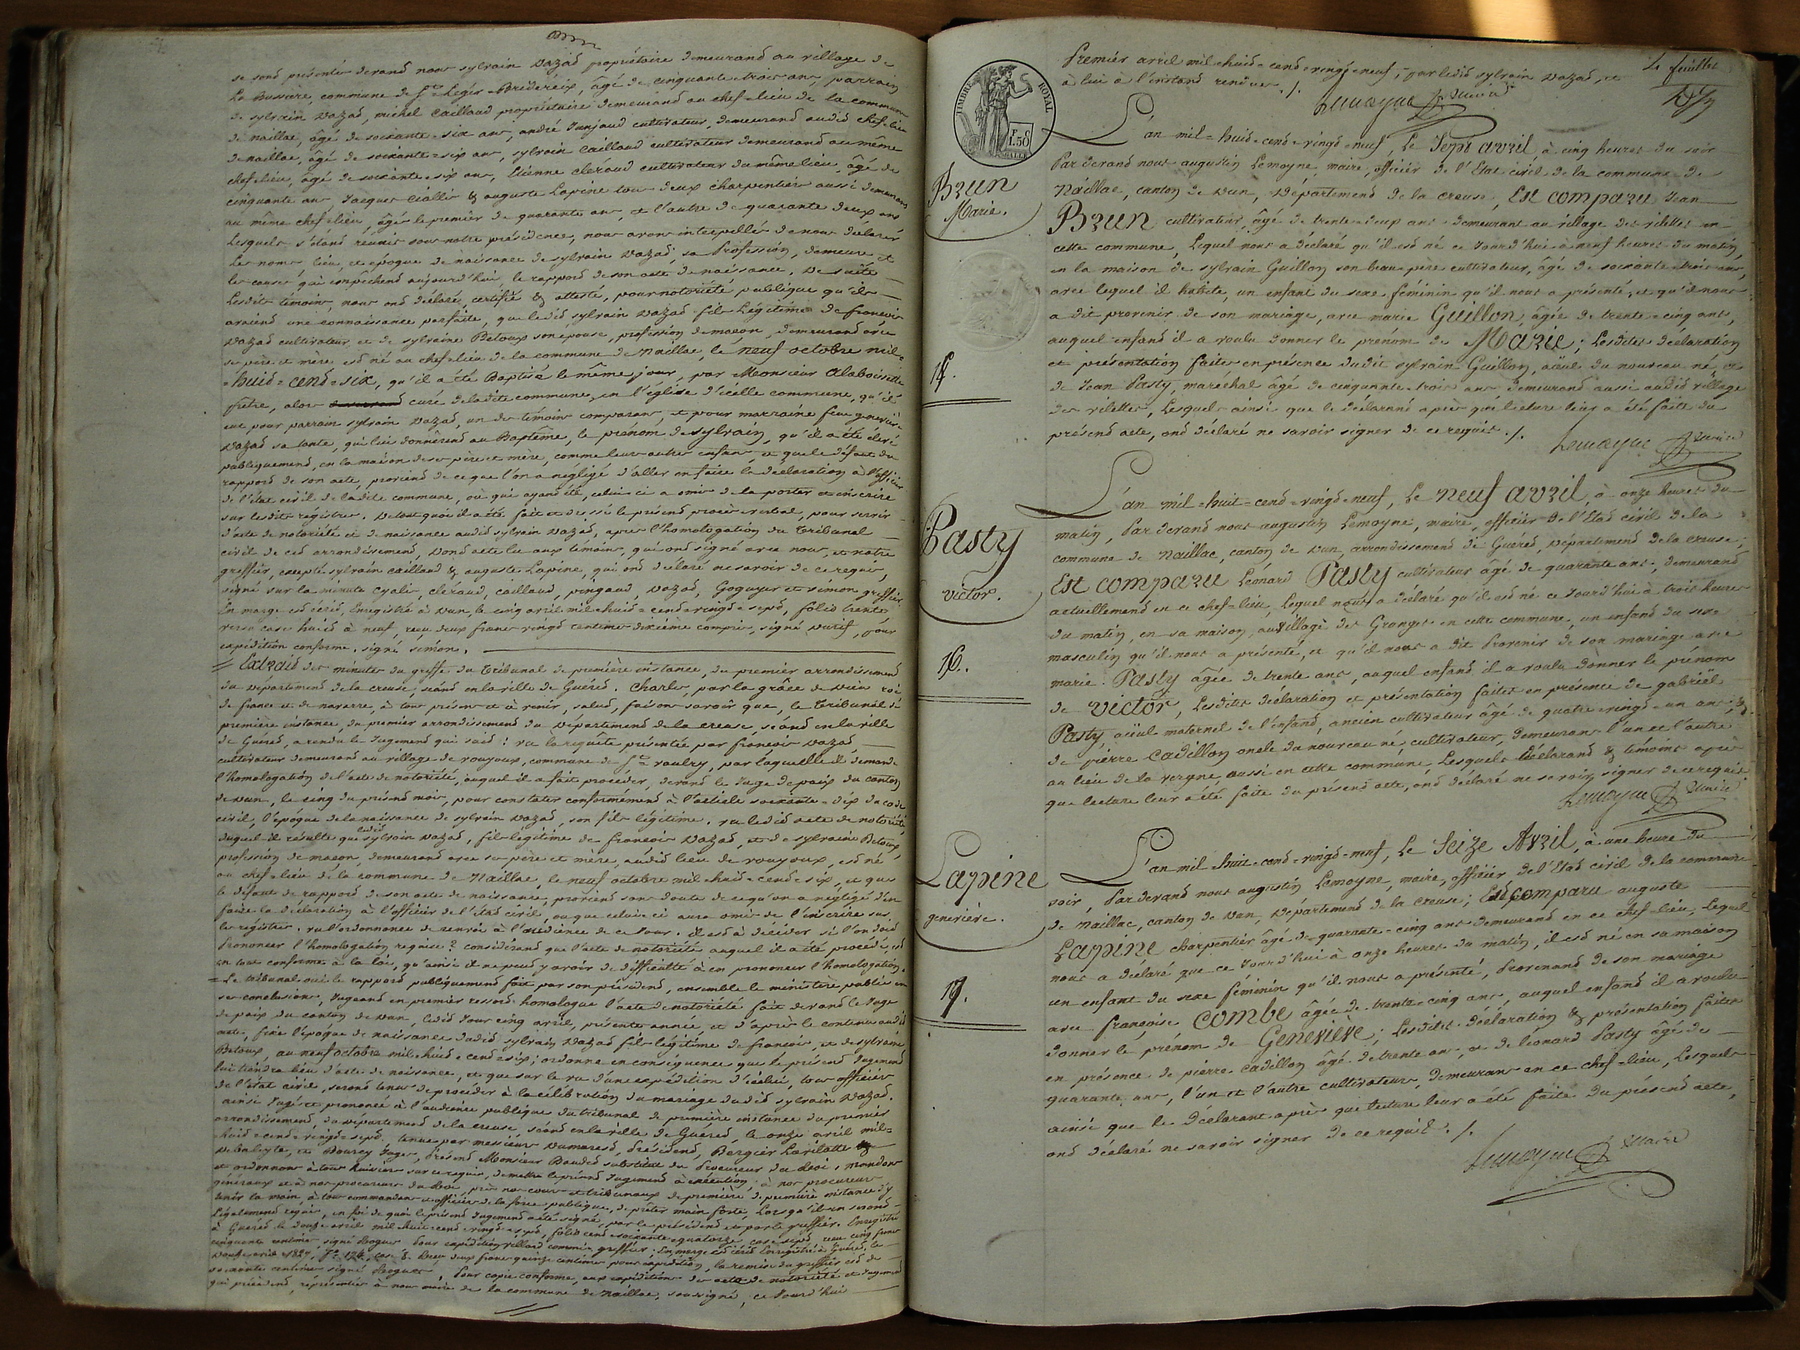 se sont présentés devant nous sylvain Dazad propriétaire demeurand au village de
La Bussière, commune de St. Legér = Bridéreix, âgé de cinquante-trois ans, parrain
de sylvain Dazad, michel Caillaud propriétaire demeurand au chef-lieu de la commune
de naillac, âgé de soixante-six ans, andré Junjaud cultivateur, demeurand audid chef-lieu
de naillac, âgé de soixante-six ans, sylvain Caillaud cultivateur demeurand au même
chef-lieu, âgé de soixante-six ans, Etienne Cléraud cultivateur du même lieu, âgé de
cinquante ans, Jacques Cialis & auguste Lapine tous deux charpentiers aussi demeurans
au même chef-lieu, âgés le premier de quarante ans, et l'autre de quarante deux ans
Lesquels s'étand réunis sous notre présidence, nous avons interpellés de nous déclarer
Les noms lieu, et époque de naissance de sylvain Dazad, sa Profession, demeure et
les causes qui empêchend aujourd'hui, le rapport de son acte de naissance. De suite
Lesdits témoins, nous ont déclaré, certifié & attesté, pour notoriété publique qu'ils
avaiend une connaissance parfaite, que ledid sylvain Dazad fils Légitime de françois
Dazad cultivateur et de sylvaine Betoux son épouse, profession de maçon, demeurand avec
ses père et mère, est né au chef-lieu de la commune de Naillac, le neuf octobre mil=
=huid=cend=six, qu'il a été Baptisé le même jour, par Monsieur alaboisette
prêtre, alors curé de ladite commune, en l'église d'icelle commune, qu'il
eut pour parrain sylvain Dazad, un des témoins comparans, et pour marraine feue geneviève
Dazad sa tante, qui lui donnèrend au Baptême, le prénom de sylvain, qu'il a été élevé
publiquemend, en la maison de ses père et mère, comme leurs autres enfans et que le défaut du
rapport de son acte, proviend de ce que l'on a négligé d'aller en faire la déclaration à l'officier
de l'état civil de ladite commune, où qui ayant été, celui-ci a omis de la porter et inscrire
sur lesdits registres. De tout quoi il a été fait et dressé le présend procès-verbal, pour servir
d'acte de notoriété et de naissance audid sylvain Dazad, après l'homologation du Tribunal
civil de ced arrondissement, Dond acte lu aux témoins, qui ond signé avec nous, et notre
greffier, excepté sylvain Caillaud & auguste Lapine, qui ond déclaré ne savoir de ce requis,
signé sur la minute Cyalis, cléraud, caillaud, pingaud, Dazad, Goguyer et simon greffier
En marge est écrid, Enregistré à Dun, le cinq avril mil=huid=cend=vingd=sepd, folio trente
verso case huid à neuf, reçu deux francs vingd centimes dixième compris, signé Durif, pour
expédition conforme, signé simon.
// Extraid des minutes du greffe du Tribunal de première instance, du premier arrondissemend
du Département de la creuse, séand en la ville de Guéred. Charles, par la grâce de Dieu roi
de france et de navarre, à tous présens et à venir, salud, faisons savoir que, le Tribunal de
première instance, du premier arrondissemend du Département de la creuse, séand en la ville
de Guéred, a rendu le Jugemend qui suid : vu la requête présentée par françois Dazad
cultivateur demeurand au village de rouyoux, commune de Ste. soulry, par laquelle il demande
l'homologation de l'acte de notoriété, auquel il a fait procéder, devand le Juge de paix du canton
de Dun, le cinq du présend mois, pour constater conformémend à l'article soixante-dix du code
civil, l'époque de la naissance de sylvain Dazad, son fils légitime. vu ledid acte de notoriété
duquel il résulte que ledid sylvain Dazad, fils légitime de françois Dazad, et de sylvaine Betoux,
profession de maçon, demeurand avec ses père et mère, audid lieu de rouyoux, est né
au chef-lieu de la commune de Naillac, le neuf octobre mil=huid=cend=six, et que
le défaut de rapport de son acte de naissance, proviend sans doute de ce qu'on a négligé d'en
faire la déclaration à l'officier de l'étad civil, ou que celui-ci aura omis de l'inscrire sur
les registres. vu l'ordonnance de renvoi à l'audience de ce Jour. il est à décider si l'on doid
prononcer l'homologation requise? considérand que l'acte de notoriété auquel il a été procédé, est
en tout conforme à la loi, qu'ainsi il ne peud y avoir de difficulté à en prononcer l'homologation.
= Le tribunal ouï le rapport publiquemend fait par son présidend, ensemble le ministère public en
ses conclusions, Jugeand en premier ressort homologue l'acte de notoriété fait devand le Juge
de paix du canton de Dun, ledid Jour cinq avril, présente année, et d'après le contenu audid
acte, fixe l'époque de naissance dudid sylvain Dazad fils légitime de françois, et de sylvaine
Betoux, au neuf octobre mil=huid=cend=six; ordonne en conséquence que le présend Jugemend
lui tiendra lieu d'acte de naissance, et que sur le vu d'une expédition d'icelui, tous officiers
de l'état civil, serond tenus de procéder à la célébration du mariage dudid sylvain Dazad.
ainsi Jugé et prononcé à l'audience publique du tribunal de première instance du premier
arrondissement, du département de la creuse, séand en la ville de Guéred, le onze avril mil=
huid=cend=vingd=sepd. tenue par messieurs Dumarest, Présidend, Bergier Lavilatte
et Bourcy Juges, Présend Monsieur Baudet substitut du Procureur du Roi; mandons
et ordonnons à tous huissiers sur ce requis, de mettre le présend Jugemend à exécution; à nos procureurs
généraux et à nos procureurs du Roi, près nos cours et tribunaux de première instance d'y
tenir la main, à tous commandans et officiers de la force publique, de prêter main forte, Lorsqu'ils en serond
légalemend requis, en foi de quoi le présend Jugemend a été signé, par le présidend et par le greffier. Enregistré
à Guéred le douze avril mil huid cend vingd sepd, folio cend soixante quatorze, case sepd, reçu cinq francs
cinquante centimes signé Boguet. Pour expédition villard commis greffier; En marge est écrid Enregistré à Guéred, le
douze avril 1827, fo. 174, case 8. Reçu deux francs quinze centimes pour expédition, la remise du greffier est de
soixante centimes signé Boguet. Pour copie conforme, aux expéditions des acte de notoriété et Jugemend
qui précèdend, représentées à nous maire de la commune de Naillac, soussigné, ce Jourd'hui
Premiér avril mil=huid=cend=vingd=neuf, par ledid sylvain Dazad, et
à lui à l'instand rendues ./.
Lemoyne maire
4e feuillet
TIMBRE ROYAL
1.50
Brun
Marie.
15.
L'an mil=huid=cend=vingd=neuf, Le Sept avril à cinq heures du soir
Par devand nous augustin Lemoyne, maire, officier de l'Etat civil de la commune de
Naillac, canton de Dun, Département de la creuse, Est comparu Jean
Brun cultivateur, âgé de trente-deux ans demeurant au village des vilettes en
cette commune, Lequel nous a déclaré qu'il est né ce Jourd'hui à neuf heures du matin,
en la maison de sylvain Guillon son beau-père cultivateur, âgé de soixante-trois ans,
avec lequel il habite, un enfant du sexe féminin qu'il nous a présenté, et qu'il nous
a dit provenir de son mariage, avec marie Guillon, âgée de trente-cinq ans,
auquel enfand il a voulu donner le prénom de Marie; Lesdites déclaration
et présentation faites en présence dudit sylvain Guillon, aïeul du nouveau né, et
de Jean Pasty, maréchal âgé de cinquante-trois ans demeurand aussi audid village
des vilettes, Lesquels ainsi que le déclarand après que lecture leur a été faite du
présend acte, ond déclaré ne savoir signer de ce requis ./.
Lemoyne maire
Pasty
victor.
16.
L'an mil=huit=cend=vingd=neuf, Le neuf avril, à onze heures du
matin, Par devand nous augustin Lemoyne, maire, officier de l'Etad civil de la
commune de Naillac, canton de Dun, arrondissement de Guéred, Département de la creuse;
Est comparu Léonard Pasty cultivateur âgé de quarante ans, demeurand
actuellemend en ce chef-lieu, Lequel nous a déclaré qu'il est né ce Jourd'hui à trois heures
du matin, en sa maison, au village des Granges en cette commune, un enfand du sexe
masculin qu'il nous a présenté, et qu'il nous a dit provenir de son mariage avec
marie Pasty âgée de trente ans, auquel enfand il a voulu donner le prénom
de victor, Lesdites déclaration et présentation faites en présence de gabriel
Pasty, aïeul maternel de l'enfand, ancien cultivateur âgé de quatre-vingd-un ans, &
de pierre Cadillon oncle du nouveau né, cultivateur, demeurans l'un et l'autre
au lieu de la vergne aussi en cette commune, Lesquels déclarand & témoins après
que lecture leur a été faite du présend acte, ond déclaré ne savoir signer de ce requis
Lemoyne maire
Lapine
geneviève.
17.
L'an mil=huit=cend=vingd=neuf, Le Seize Avril, à une heure du
soir, Par devand nous augustin Lemoyne, maire, officier de l'Etad civil de la commune
de Naillac, canton de Dun, Département de la Creuse; Est comparu auguste
Lapine charpentier âgé de quarante-cinq ans demeurand en ce chef-lieu, Lequel
nous a déclaré que ce Jourd'hui à onze heures du matin, il est né en sa maison
un enfant du sexe féminin qu'il nous a présenté, Provenand de son mariage
avec françoise Combe âgée de trente-cinq ans, auquel enfand il a voulu
donner le prénom de Geneviève; Lesdites déclaration & présentation faites
en présence de pierre Cadillon âgé de trente ans, et de léonard Pasty âgé de
quarante ans, l'un et l'autre cultivateurs, demeurans en ce chef-lieu, Lesquels
ainsi que le Déclarant après que lecture leur a été faite du présend acte,
ond déclaré ne savoir signer de ce requis ./.
Lemoyne maire